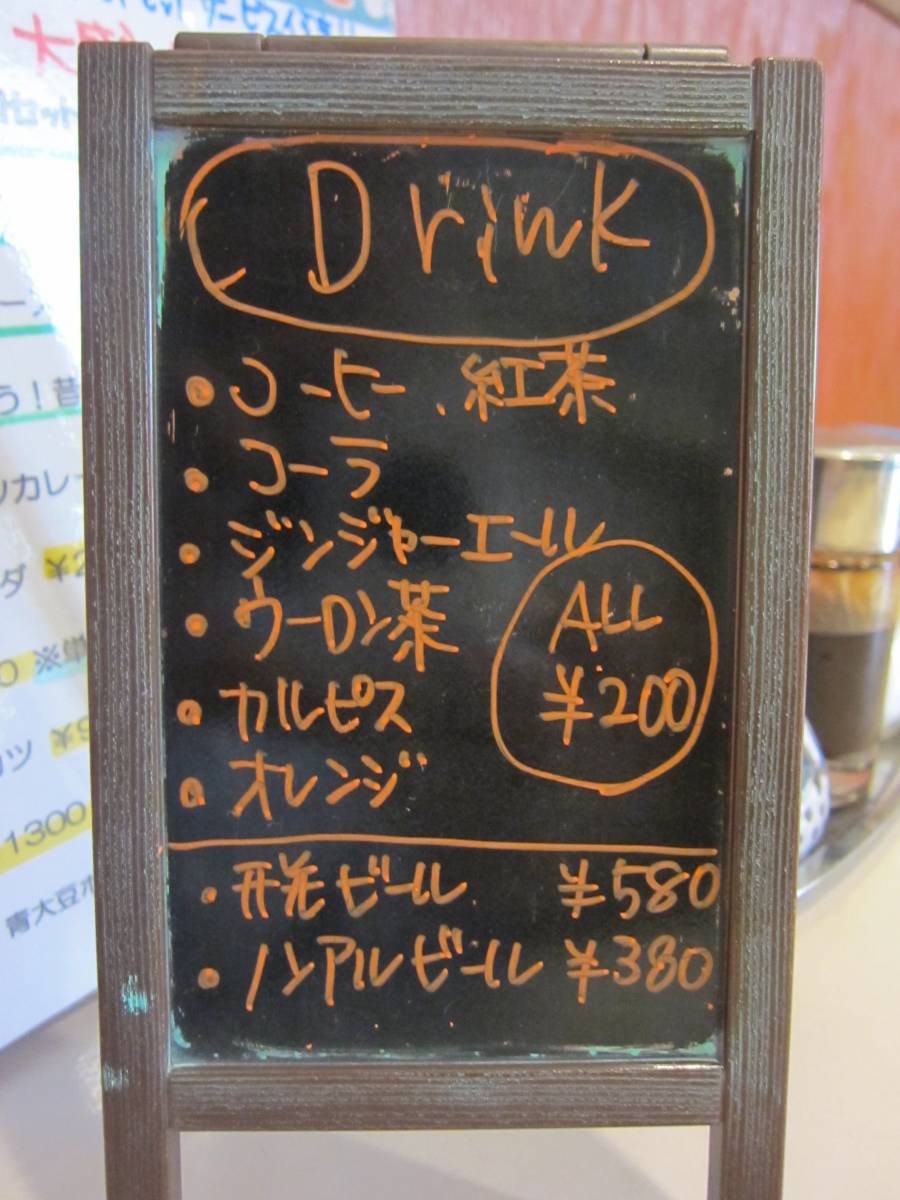 Drink
• コーヒー、紅茶
• コーラ
• ジンジャーエール
• ウーロン茶
• カルピス
• オレンジ
ALL
¥200
• ビール ¥580
• ノンアルビール ¥380
う！昔
ツカレー
ダ ¥2
0 ※単
カツ
1300
青大豆